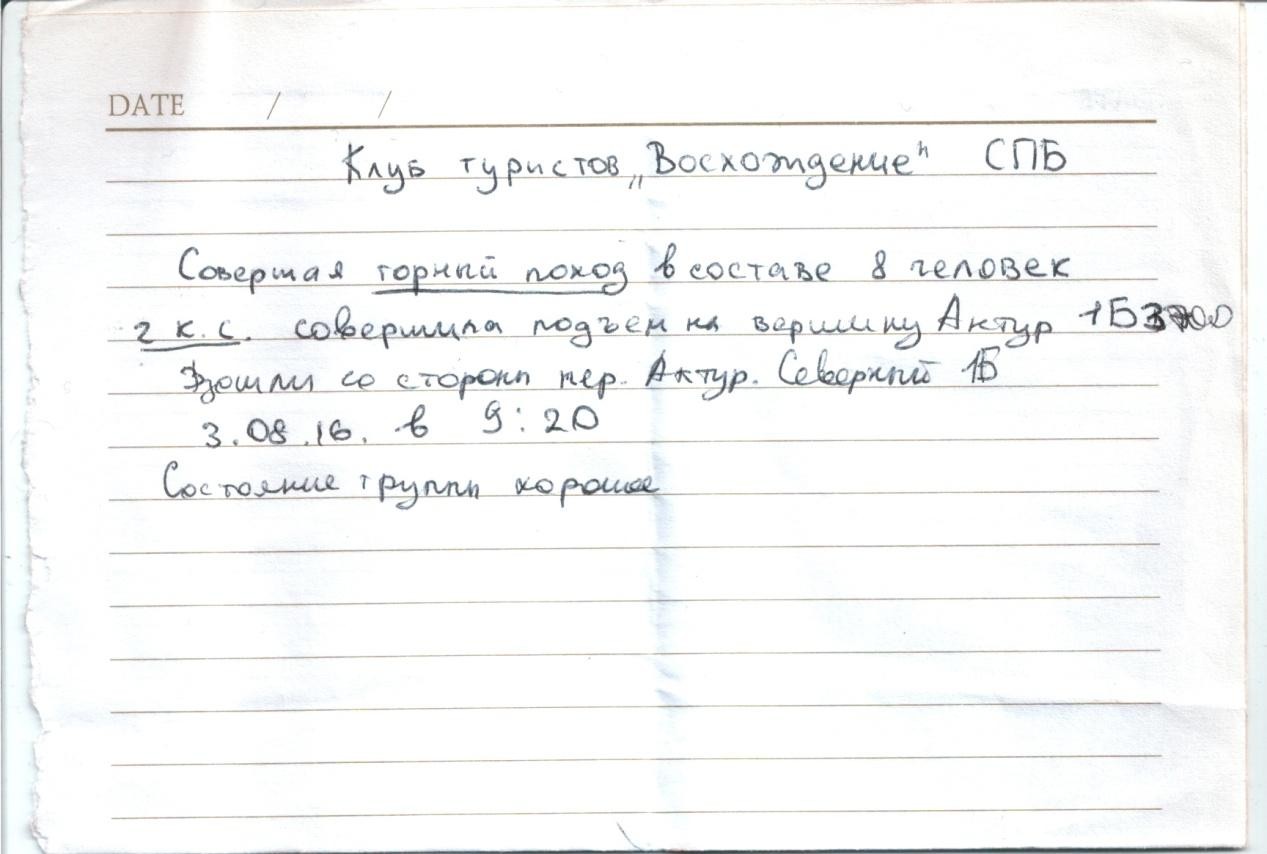 DATE / /
Клуб туристов „Восхождение" СПБ
Совершая горный поход в составе 8 человек
2 к.с. совершила подъем на вершину Актур 1Б 3700
Взошли со стороны пер. Актур. Северный 1Б
3.08.16. в 9:20
Состояние группы хорошее